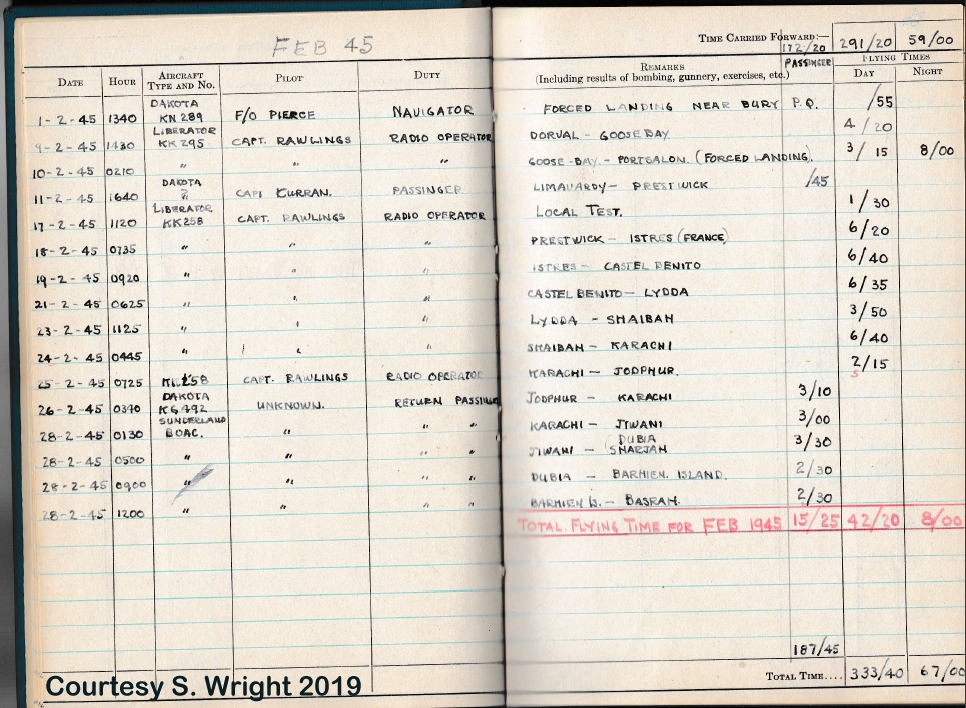 FEB 45
DATE HOUR AIRCRAFT TYPE AND NO. PILOT DUTY
1-2-45 1340 DAKOTA KN 289 F/O PIERCE NAVIGATOR
9-2-45 1430 LIBERATOR KK 295 CAPT. RAWLINGS RADIO OPERATOR
10-2-45 0210 " " "
11-2-45 1640 DAKOTA ? CAPT CURRAN. PASSINGER
17-2-45 1120 LIBERATOR KK258 CAPT. RAWLINGS RADIO OPERATOR
18-2-45 0735 " " "
19-2-45 0920 " " "
21-2-45 0625 " " "
23-2-45 1125 " " "
24-2-45 0445 " "
25-2-45 0725 KK258 CAPT. RAWLINGS RADIO OPERATOR
26-2-45 0340 DAKOTA KG492 UNKNOWN. RETURN PASSING
28-2-45 0130 SUNDERLAND BOAC. " " "
28-2-45 0500 " " " "
28-2-45 0900 " " " "
28-2-45 1200 " " " "
Courtesy S. Wright 2019
TIME CARRIED FORWARD:— 172/20 291/20 59/00
REMARKS PASSINGER FLYING TIMES
(Including results of bombing, gunnery, exercises, etc.) DAY NIGHT
FORCED LANDING NEAR BURY P.Q. /55
DORVAL - GOOSEBAY 4/20
GOOSE-BAY - PORTSALON. (FORCED LANDING). 3/15 8/00
LIMAVARDY - PRESTWICK /45
LOCAL TEST. 1/30
PRESTWICK - ISTRES (FRANCE) 6/20
ISTRES - CASTEL BENITO 6/40
CASTEL BENITO - LYDDA 6/35
LYDDA - SHAIBAH 3/50
SHAIBAH - KARACHI 6/40
KARACHI - JODPHUR. 2/15
5
JODPHUR - KARACHI 3/10
KARACHI - JIWANI 3/00
JIWANI - (DUBIA SHARJAH 3/30
DUBIA - BARHIEN. ISLAND. 2/30
BARHIEN IS. - BASRAH. 2/30
TOTAL FLYING TIME FOR FEB 1945 15/25 42/20 8/00
187/45
TOTAL TIME.... 333/40 67/00